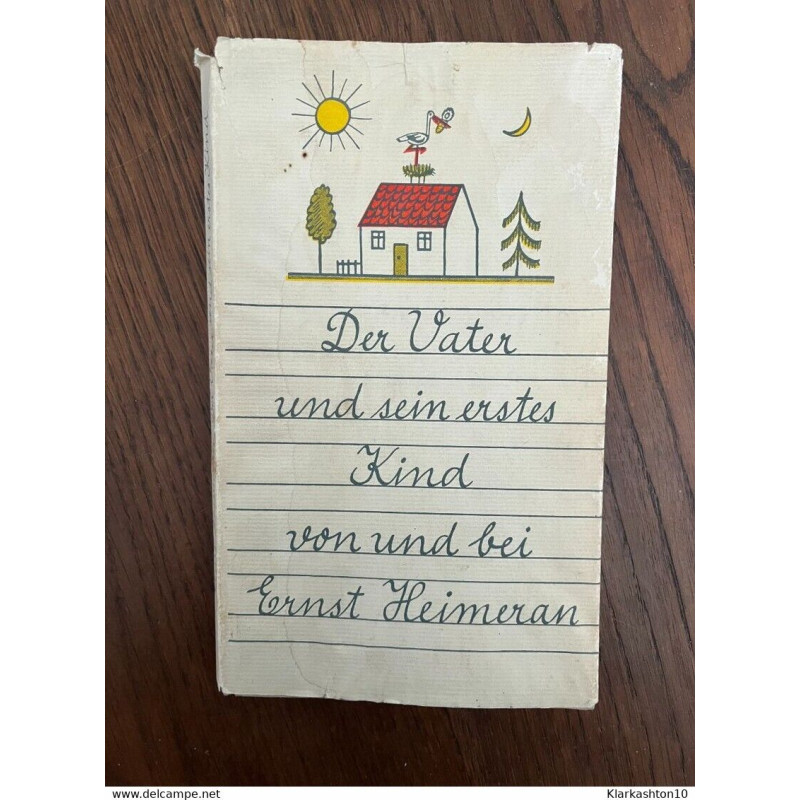 Der Vater
und sein erstes
Kind
von und bei
Ernst Heimeran
www.delcampe.net
Klarkashton10